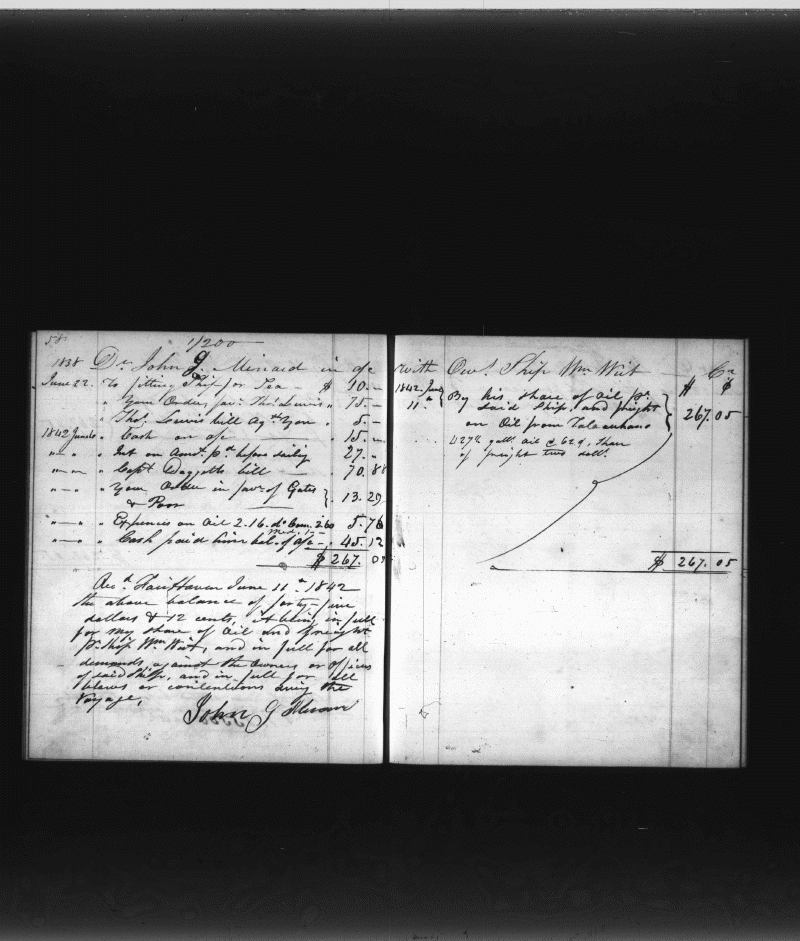 58
1/200
1838 Dr. John G. Minard in a/c
June 22. To fitting Ship for Sea — $ 10. —
" Your Order, fav. Thos. Lewis " 75. —
" Thos. Lewis bill agst. you . 5. —
1842 June " Cash on a/c . 15. —
" — " " Int on Amt. pd. before sailing 27. "
" — " " Capt. Daggetts bill — . 70. 88
" — " " Your Order in favr. of Gates } . 13. 29
& Poor
" — " " Expences on Oil 2.16. do Com. 3.60 5. 76
Med. 1 —
" — " " Cash paid him bal. of a/c — . 45. 12
$ 267. 05
Recd. Fair Haven June 11th 1842
the above balance of forty-five
dollars & 12 cents, it being in full
for my share of Oil and freight
pr. Ship Wm. Wirt, and in full for all
demands, against the Owners or Officers
of said Ship, and in full for all
claims or contentions during the
Voyage,
John G
with Owrs. Ship Wm Wirt Cr
$ ¢
1842 June { By his share of Oil pr. }
11. " said Ship, and freight 267. 05
on Oil from Talcahuano
galls. oil @ 62 ¢, share
of freight two dolls.
$ 267. 05